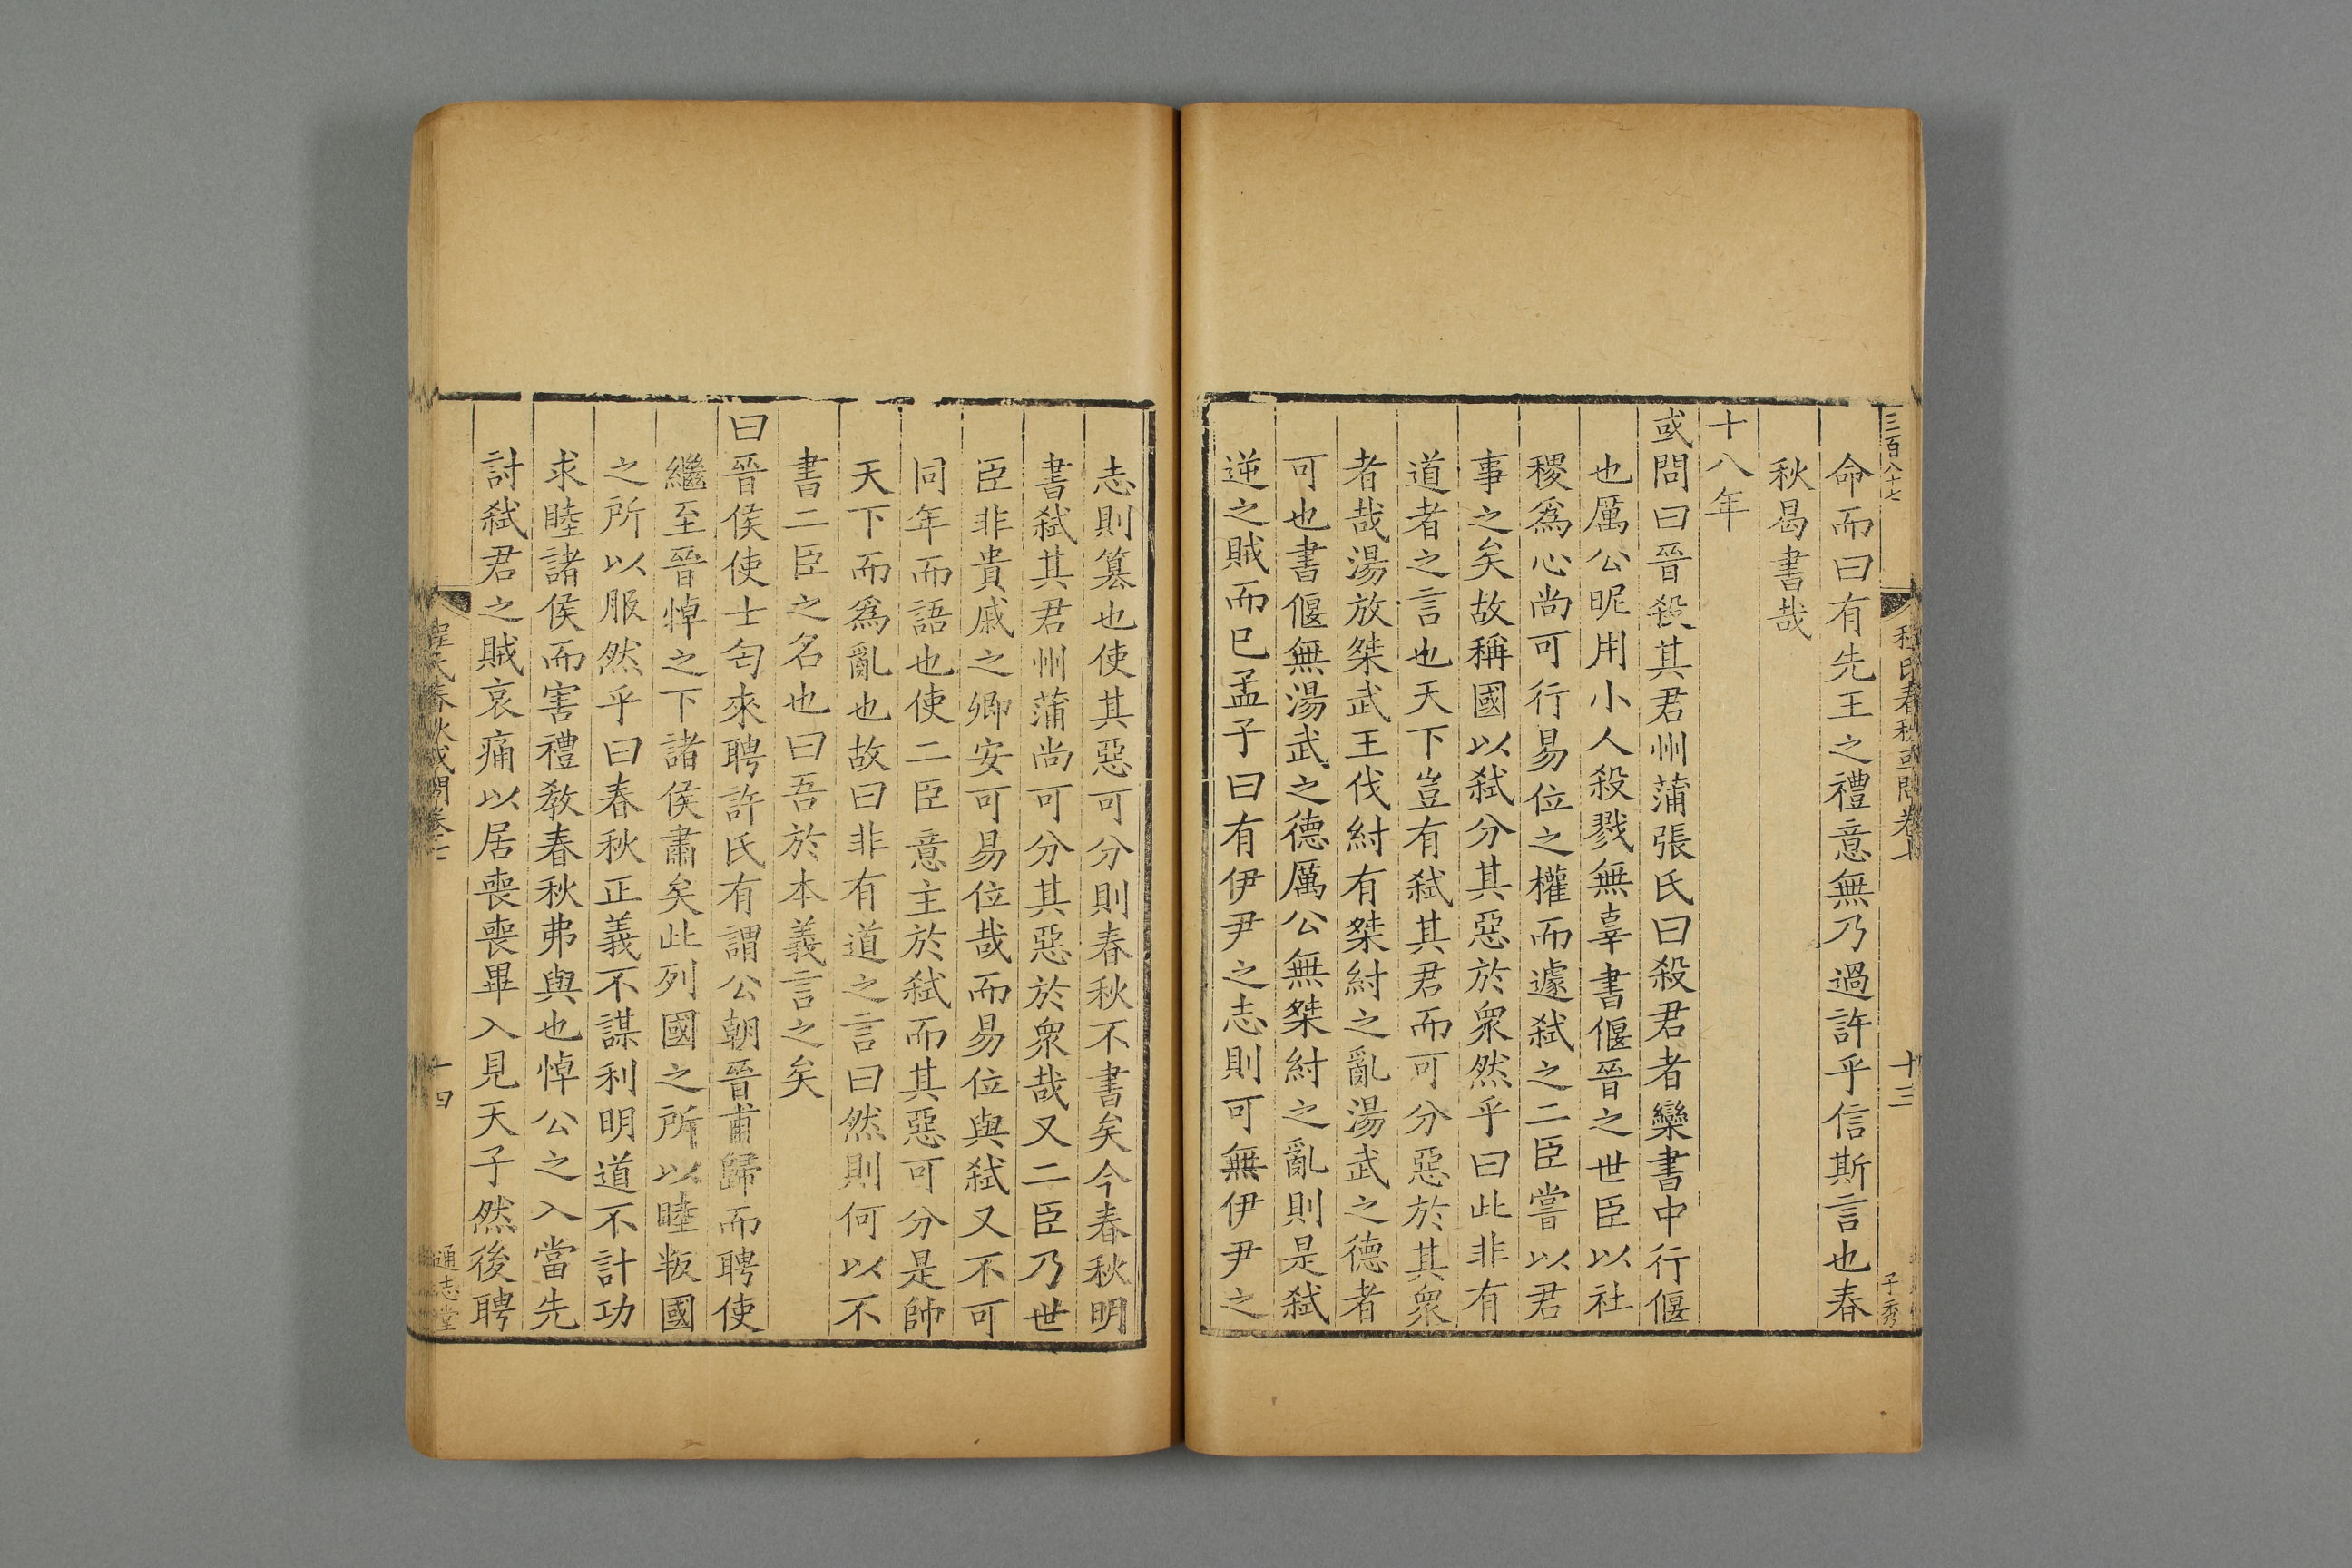 三百八十七
程氏春秋或問卷七
十三
子秀
命而曰有先王之禮意無乃過許乎信斯言也春
秋曷書哉
十八年
或問曰晉殺其君州蒲張氏曰殺君者欒書中行偃
也厲公昵用小人殺戮無辜書偃晉之世臣以社
稷爲心尚可行易位之權而遽弑之二臣嘗以君
事之矣故稱國以弑分其惡於衆然乎曰此非有
道者之言也天下豈有弑其君而可分惡於其衆
者哉湯放桀武王伐紂有桀紂之亂湯武之德者
可也書偃無湯武之德厲公無桀紂之亂則是弑
逆之賊而巳孟子曰有伊尹之志則可無伊尹之
志則篡也使其惡可分則春秋不書矣今春秋明
書弑其君州蒲尚可分其惡於衆哉又二臣乃世
臣非貴戚之卿安可易位哉而易位與弑又不可
同年而語也使二臣意主於弑而其惡可分是帥
天下而爲亂也故曰非有道之言曰然則何以不
書二臣之名也曰吾於本義言之矣
曰晉侯使士匄來聘許氏有謂公朝晉甫歸而聘使
繼至晉悼之下諸侯肅矣此列國之所以睦叛國
之所以服然乎曰春秋正義不謀利明道不計功
求睦諸侯而害禮教春秋弗與也悼公之入當先
討弑君之賊哀痛以居喪喪畢入見天子然後聘
程氏春秋或問卷七
十四
通志堂